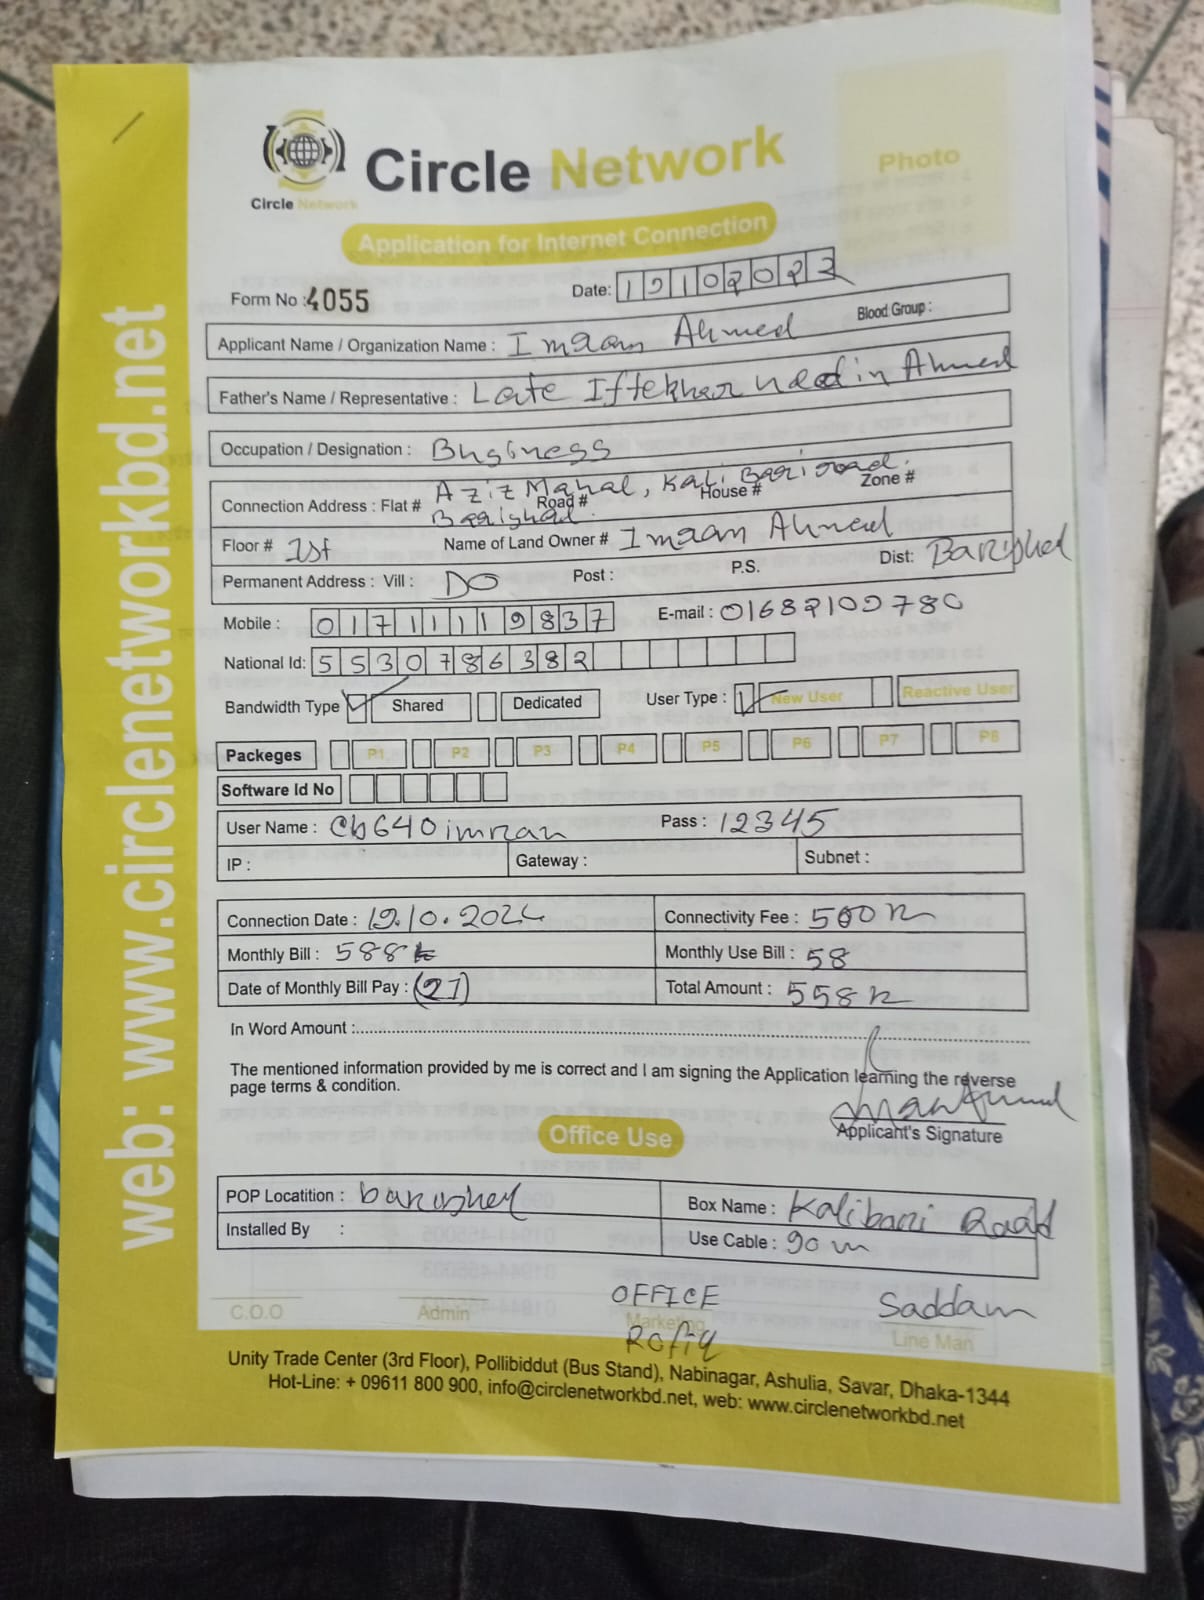 Circle Network
Circle Network
Photo
Application for Internet Connection
Form No : 4055
Date: 19102022
Applicant Name / Organization Name : Imran Ahmed Blood Group :
Father's Name / Representative : Late Iftekhar Uddin Ahmed
Occupation / Designation : Business
Connection Address : Flat # Aziz Mahal, Kali Bari road. Road # House # Zone #
Barishal.
Floor # 1st Name of Land Owner # Imran Ahmed
Permanent Address : Vill : DO Post : P.S. Dist: Barishal
Mobile : 01711119837 E-mail : 01682109780
National Id: 5530786382
Bandwidth Type Shared Dedicated User Type : New User Reactive User
Packeges P1 P2 P3 P4 P5 P6 P7 P8
Software Id No
User Name : cb640imran Pass : 12345
IP : Gateway : Subnet :
Connection Date : 19.10.202 Connectivity Fee : 500
Monthly Bill : 588 Monthly Use Bill : 58
Date of Monthly Bill Pay : (21) Total Amount : 558
In Word Amount :
The mentioned information provided by me is correct and I am signing the Application learning the reverse
page terms & condition.
Applicant's Signature
Office Use
POP Locatition : barishal Box Name : Kalibari Road
Installed By : Use Cable : 90 m
OFFICE Saddam
C.O.O Admin Marketing Line Man
Rafiq
Unity Trade Center (3rd Floor), Pollibiddut (Bus Stand), Nabinagar, Ashulia, Savar, Dhaka-1344
Hot-Line: + 09611 800 900, info@circlenetworkbd.net, web: www.circlenetworkbd.net
web: www.circlenetworkbd.net